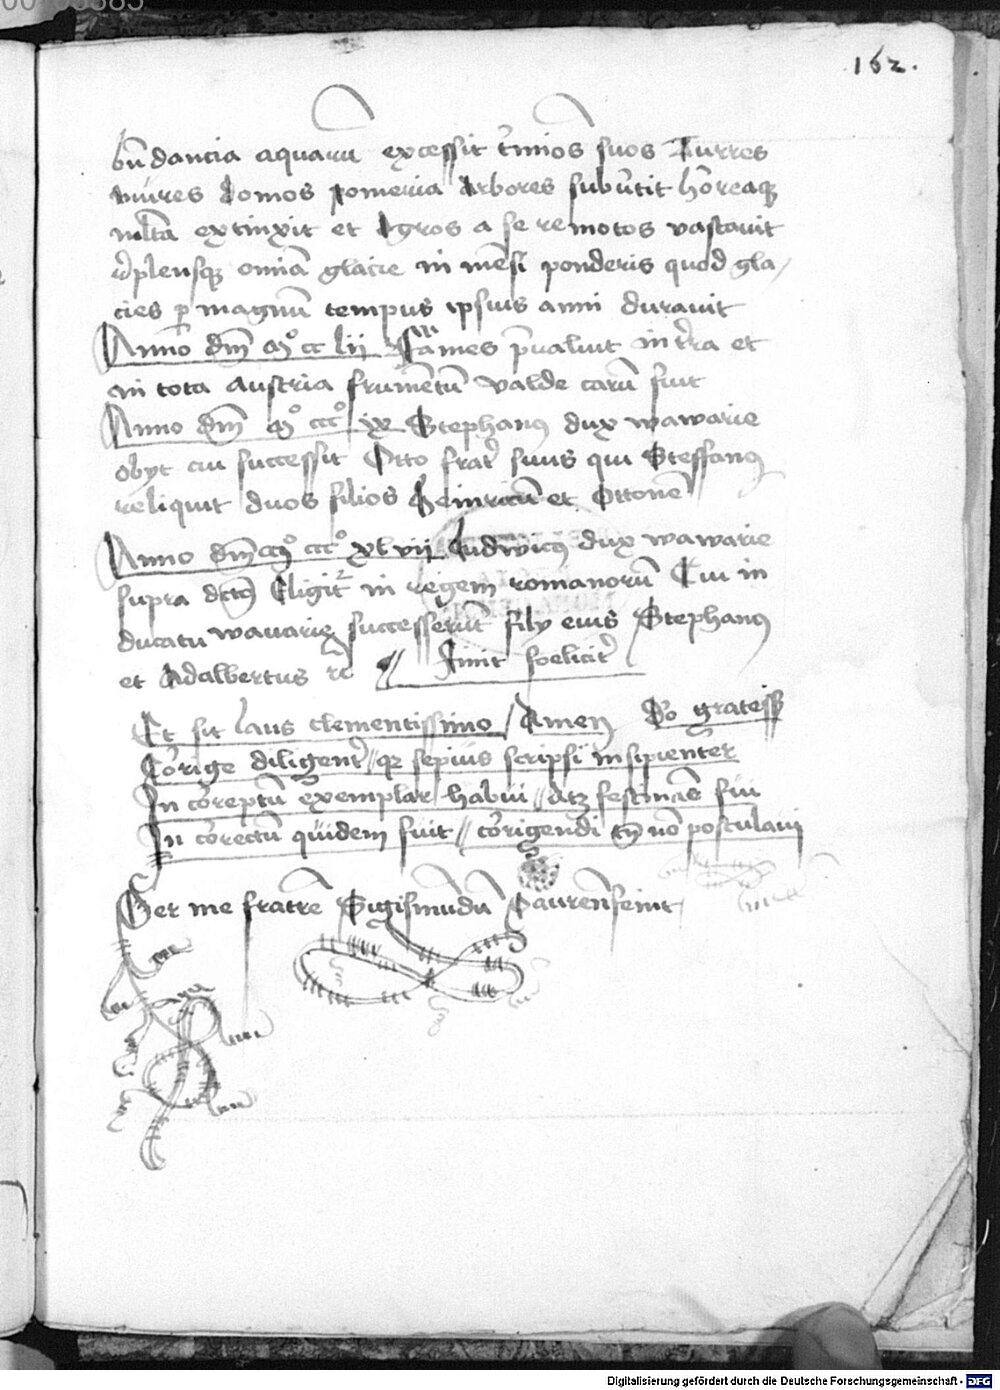 162.
bundancia aquarum excessit terminos suos Turres
mures domos pomeria Arbores subvertit horeaque
multa extinxit et Agros a se remotos vastavit
replensque omnia glacie in mensi ponderis quod gla/
cies per magnum tempus ipsius anni duravit
Anno dm Mo cc lii Fames prevaluit in terra et
in tota austria frumentum valde carum fuit
Anno dm Mo ccco ix Stephanus dux wawarie
obyt cui successit Otto frater suus qui Steffanus
reliquit duos filios Heinricum et Ottonem
Anno dm Mo ccco xlvii Ludwicus dux wawarie
supra dictus Eligitur in regem romanorum Cui in
ducatu wavarie successerunt fily eius Stephanus
et Adalbertus rc // Finit foeliciter
Et sit laus clementissimo / Amen Do gratess
Corige diligenter // quia sepius scripsi insipienter
In coreptum exemplar habui // atque festinans fui
In corectum quidem fuit // corigendi tamen non postulavi
Per me fratrem Sigismundum
Digitalisierung gefördert durch die Deutsche Forschungsgemeinschaft - DFG